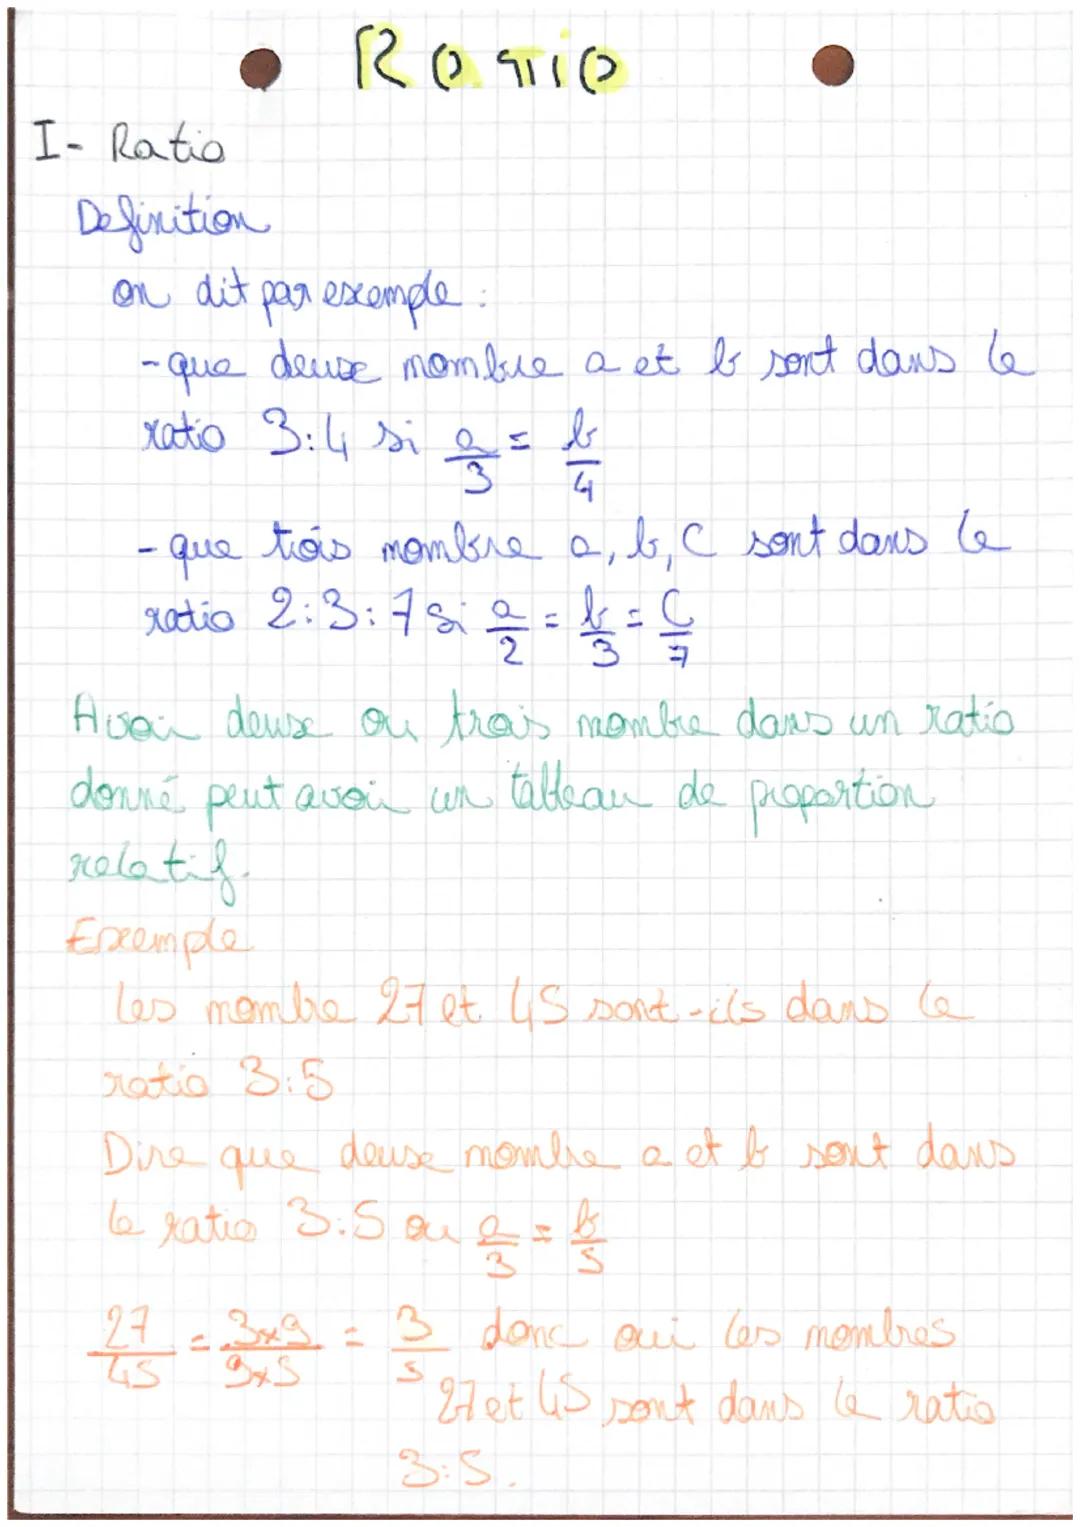 Ratio
I- Ratio
Definition
on dit par exemple :
- que deux nombre a et b sont dans le
ratio 3:4 si a/3 = b/4
- que trois nombre a, b, C sont dans le
ratio 2:3:7 si a/2 = b/3 = C/7
Avoir deux ou trois nombre dans un ratio
donné peut avoir un tableau de proportion
relatif.
Exemple
les nombre 27 et 45 sont-ils dans le
ratio 3:5
Dire que deux nombre a et b sont dans
le ratio 3:5 ou a/3 = b/5
27/45 = 3x9/9x5 = 3/5 donc oui les nombres
27 et 45 sont dans le ratio
3:5.